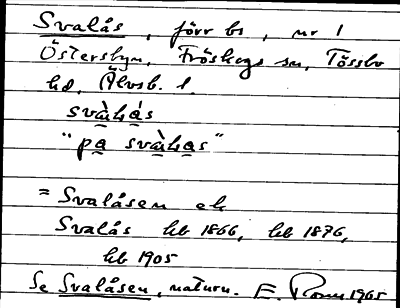 Svalås, förr bs, nr 1
Östersbyn, Fröskogs sn, Tössbo
hd, Älvsb. l
svàhás
"pa svàhas"
= Svalåsen ek
Svalås hb 1866, hb 1876,
hb 1905
Se Svalåsen, naturn. E. 1965